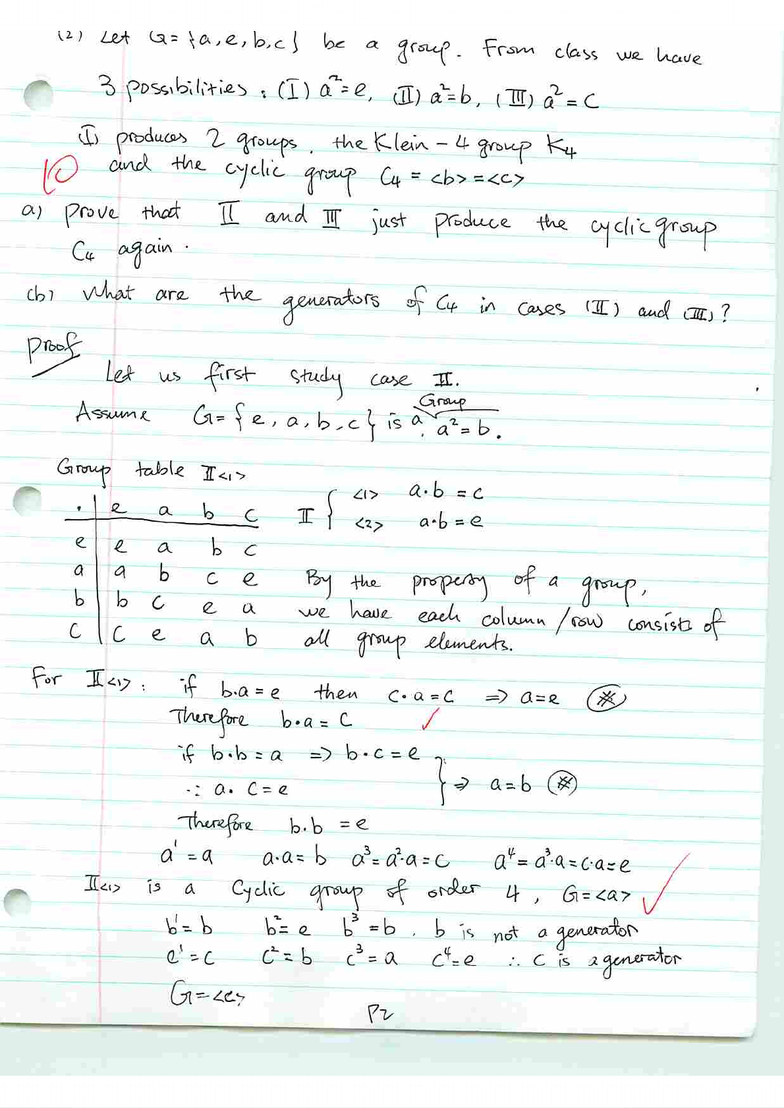 (2) Let G = {a, e, b, c} be a group. From class we have
3 possibilities : (I) a² = e, (II) a² = b, (III) a² = c
(I) produces 2 groups, the Klein - 4 group K₄
10 and the cyclic group C₄ = <b> = <c>
a) prove that II and III just produce the cyclic group
C₄ again.
(b) What are the generators of C₄ in cases (II) and (III)?
Proof
Let us first study case II.
Assume G = {e, a, b, c} is a Group, a² = b.
Group table II<1>
II { <1> a·b = c
<2> a·b = e
· | e a b c
e | e a b c
a | a b c e
b | b c e a
c | c e a b
By the property of a group,
we have each column/row consists of
all group elements.
For II<1> : if b·a = e then c·a = c ⇒ a = e ※
Therefore b·a = c ✓
if b·b = a ⇒ b·c = e
∵ a·c = e } ⇒ a = b ※
Therefore b·b = e
a¹ = a a·a = b a³ = a²·a = c a⁴ = a³·a = c·a = e
II<1> is a Cyclic group of order 4, G = <a> ✓
b¹ = b b² = e b³ = b. b is not a generator
c¹ = c c² = b c³ = a c⁴ = e ∴ c is a generator
G = <c>
P2